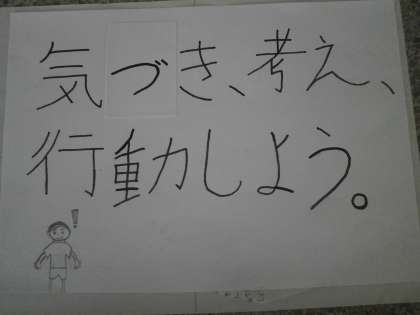 気づき、考え、
行動しよう。
!